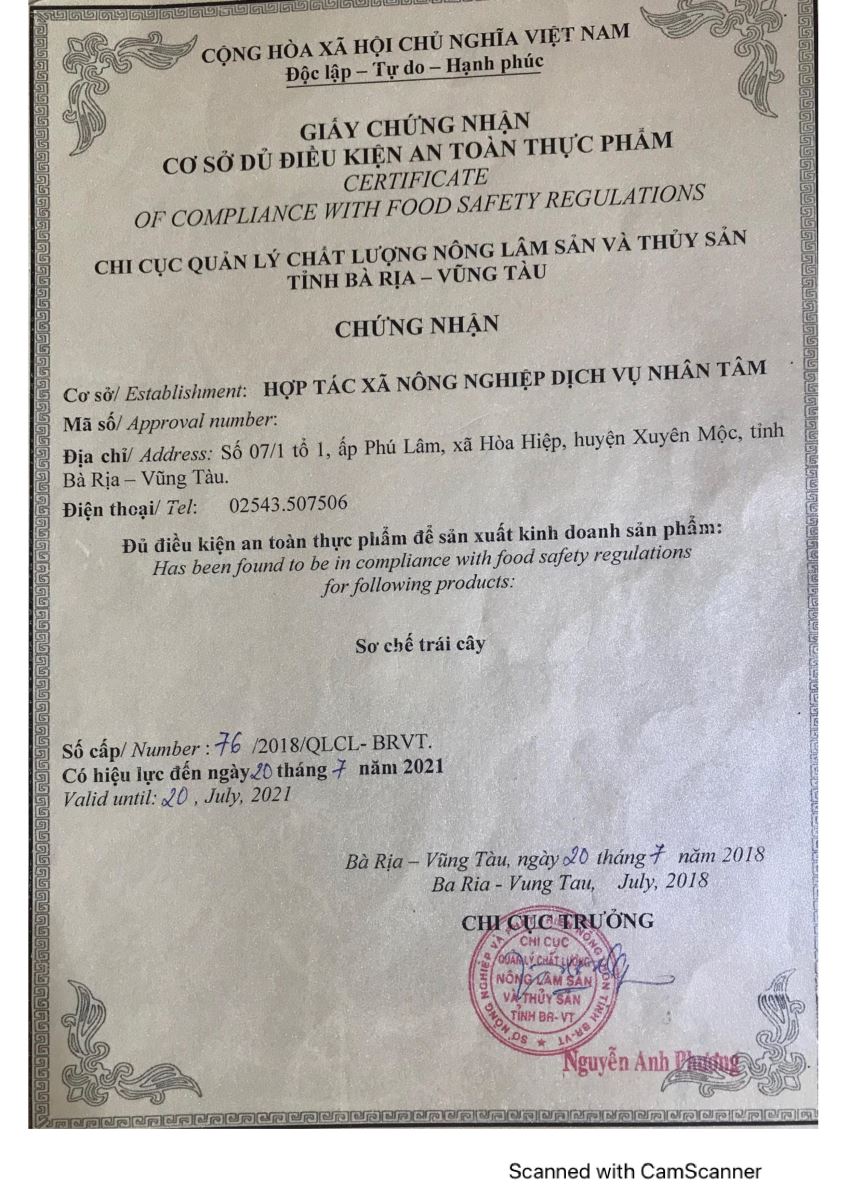 CỘNG HÒA XÃ HỘI CHỦ NGHĨA VIỆT NAM
Độc lập – Tự do – Hạnh phúc
GIẤY CHỨNG NHẬN
CƠ SỞ DỦ ĐIỀU KIỆN AN TOÀN THỰC PHẨM
CERTIFICATE
OF COMPLIANCE WITH FOOD SAFETY REGULATIONS
CHI CỤC QUẢN LÝ CHẤT LƯỢNG NÔNG LÂM SẢN VÀ THỦY SẢN
TỈNH BÀ RỊA – VŨNG TÀU
CHỨNG NHẬN
Cơ sở/ Establishment: HỢP TÁC XÃ NÔNG NGHIỆP DỊCH VỤ NHÂN TÂM
Mã số/ Approval number:
Địa chỉ/ Address: Số 07/1 tổ 1, ấp Phú Lâm, xã Hòa Hiệp, huyện Xuyên Mộc, tỉnh
Bà Rịa – Vũng Tàu.
Điện thoại/ Tel: 02543.507506
Đủ điều kiện an toàn thực phẩm để sản xuất kinh doanh sản phẩm:
Has been found to be in compliance with food safety regulations
for following products:
Sơ chế trái cây
Số cấp/ Number : 76 /2018/QLCL- BRVT.
Có hiệu lực đến ngày 20 tháng 7 năm 2021
Valid until: 20 , July, 2021
Bà Rịa – Vũng Tàu, ngày 20 tháng 7 năm 2018
Ba Ria - Vung Tau, July, 2018
CHI CỤC TRƯỞNG
CHI CỤC
QUẢN LÝ CHẤT LƯỢNG
NÔNG LÂM SẢN
VÀ THỦY SẢN
TỈNH BR- VT
SỞ NÔNG NGHIỆP VÀ PHÁT TRIỂN NÔNG THÔN TỈNH BR-VT
Nguyễn Anh Phương
Scanned with CamScanner